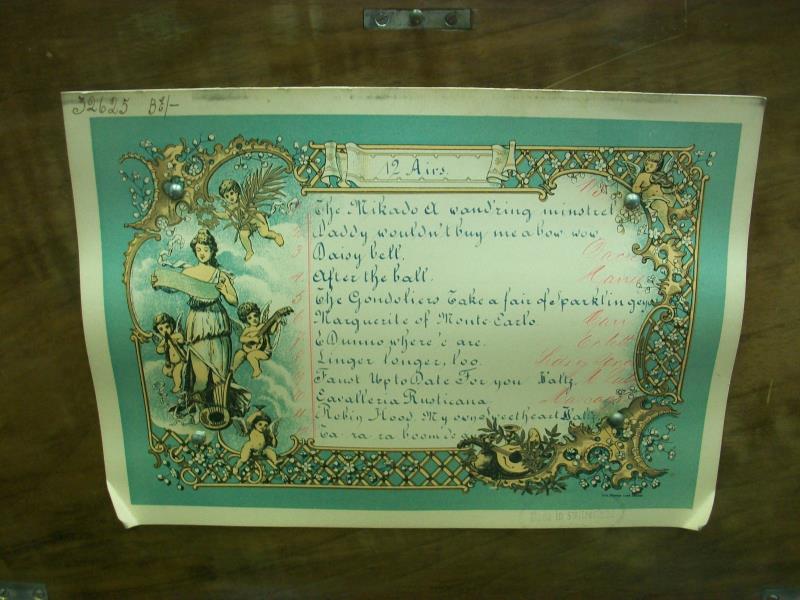 32625
12 Airs.
The Mikado A wand'ring minstrel
Daddy wouldn't buy me a bow wow
3 Daisy bell.
4 After the ball.
5 The Gondoliers Take a fair of Sparkling eyes
Marguerite of Monte Carlo.
E Dunno where'e are.
Linger longer, loo.
Faust Up to Date For you Waltz
Cavalleria Rusticana
Robin Hood. My own Sweetheart Waltz
Ta ra ra boom de